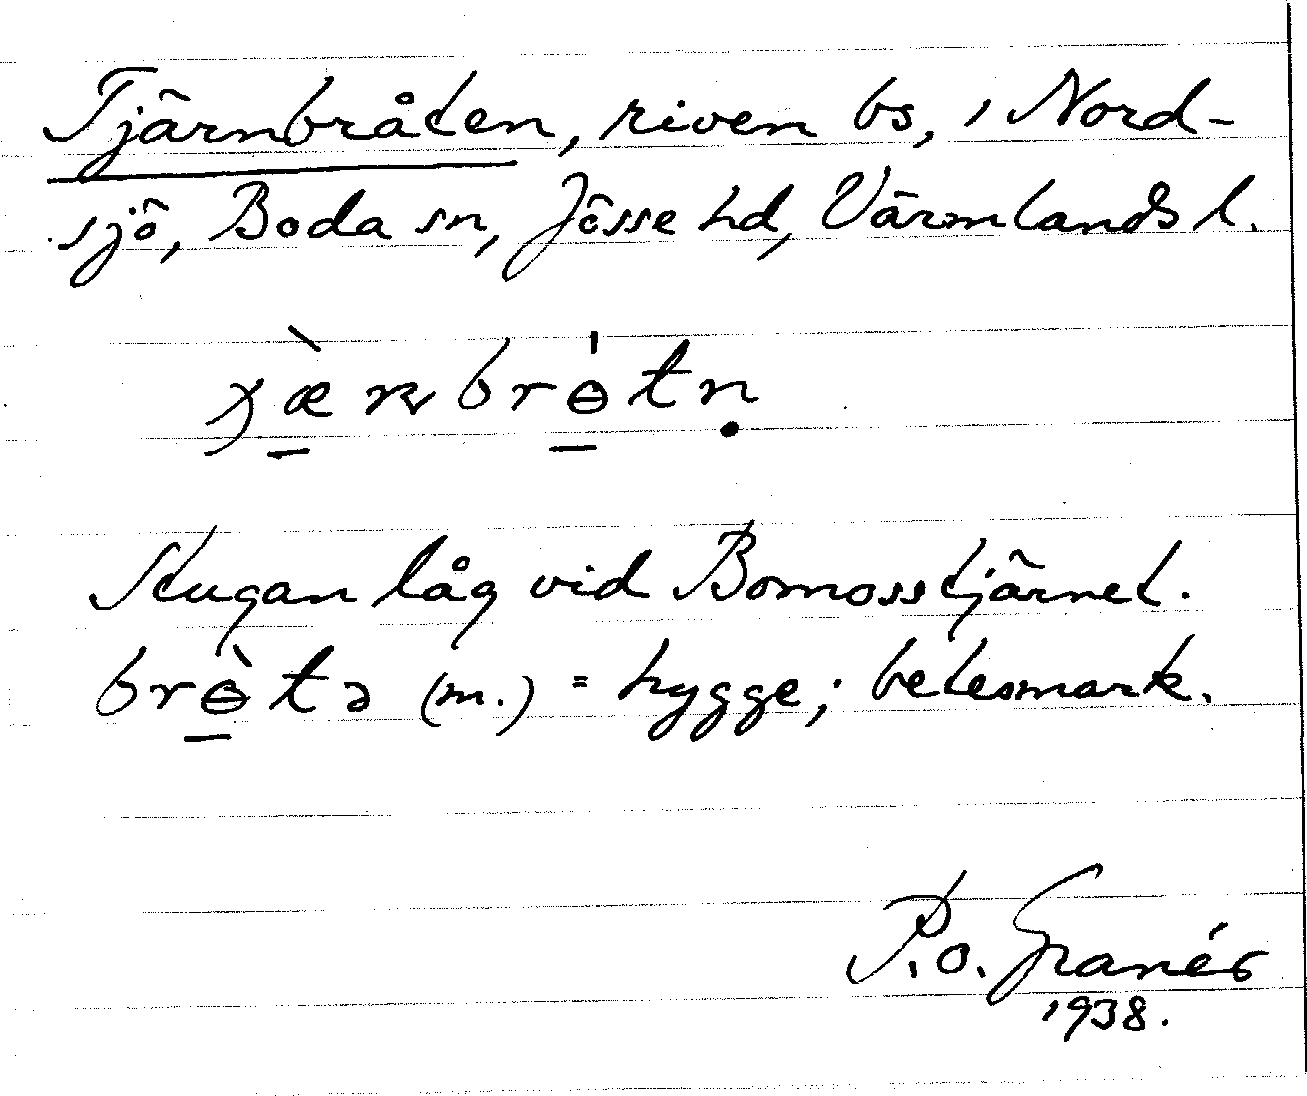 Tjärnbråten, riven bs, i Nord-
sjö, Boda sn, Jösse hd, Värmlands l.
Stugan låg vid Bomosstjärnet.
brɵ̀tə (m.) = hygge; betesmark.
P.O. Granér
1938.